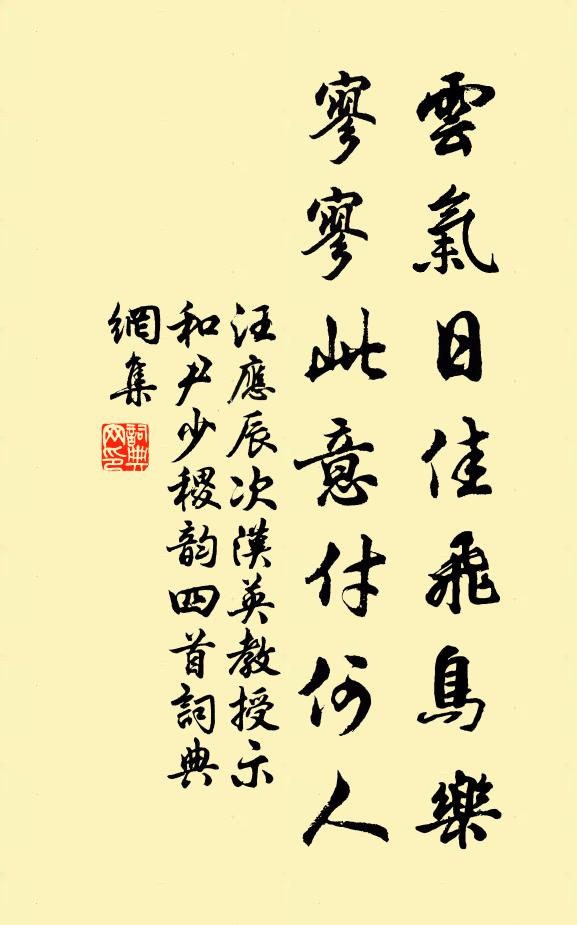 雲氣日佳飛鳥樂
寥寥此意付何人
汪應辰次漢英教授示
和尹少稷韵四首詞典
網集
詞典
网印